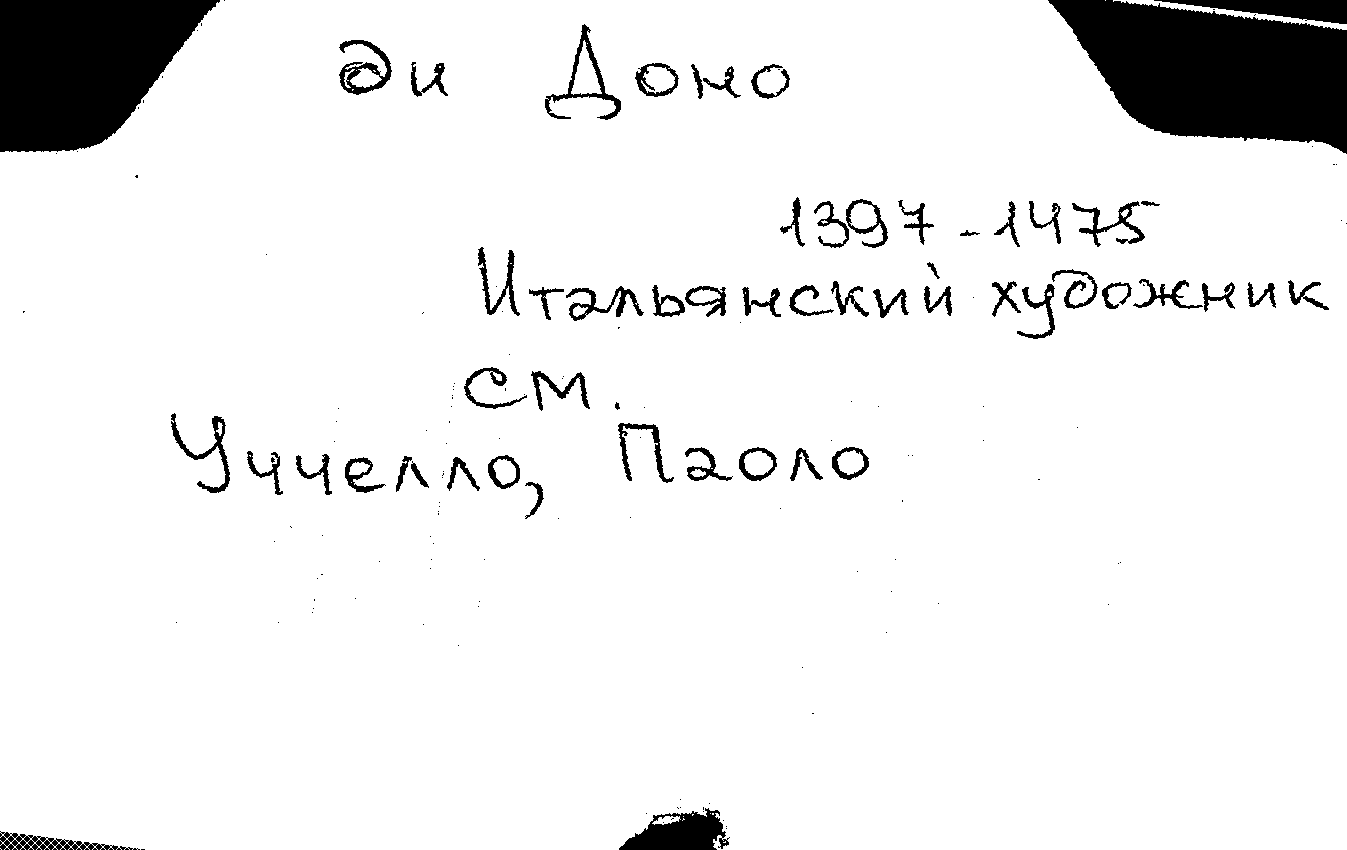 ди Доно
1397-1475
Итальянский художник
см.
Уччелло, Паоло